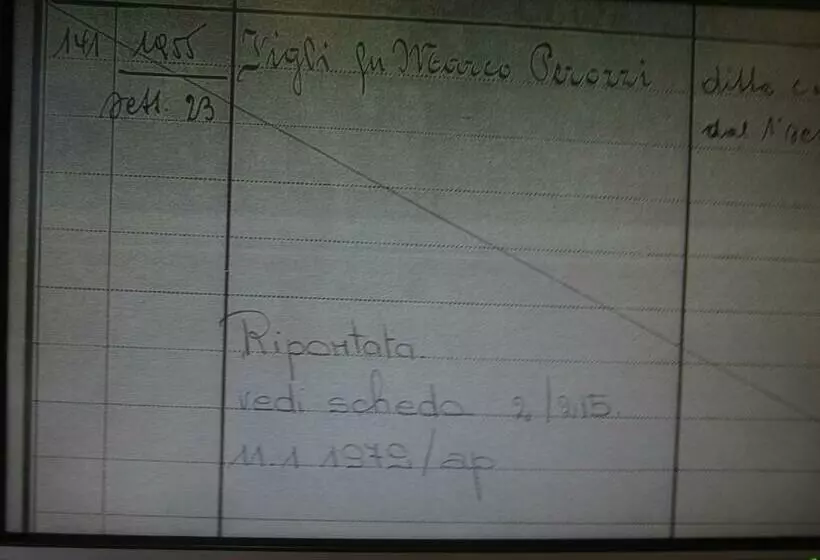 141 1955 Figli fu Marco Perozzi ditta
sett. 23 dal
Riportata
vedi scheda 2/215.
11.1 1972/ap